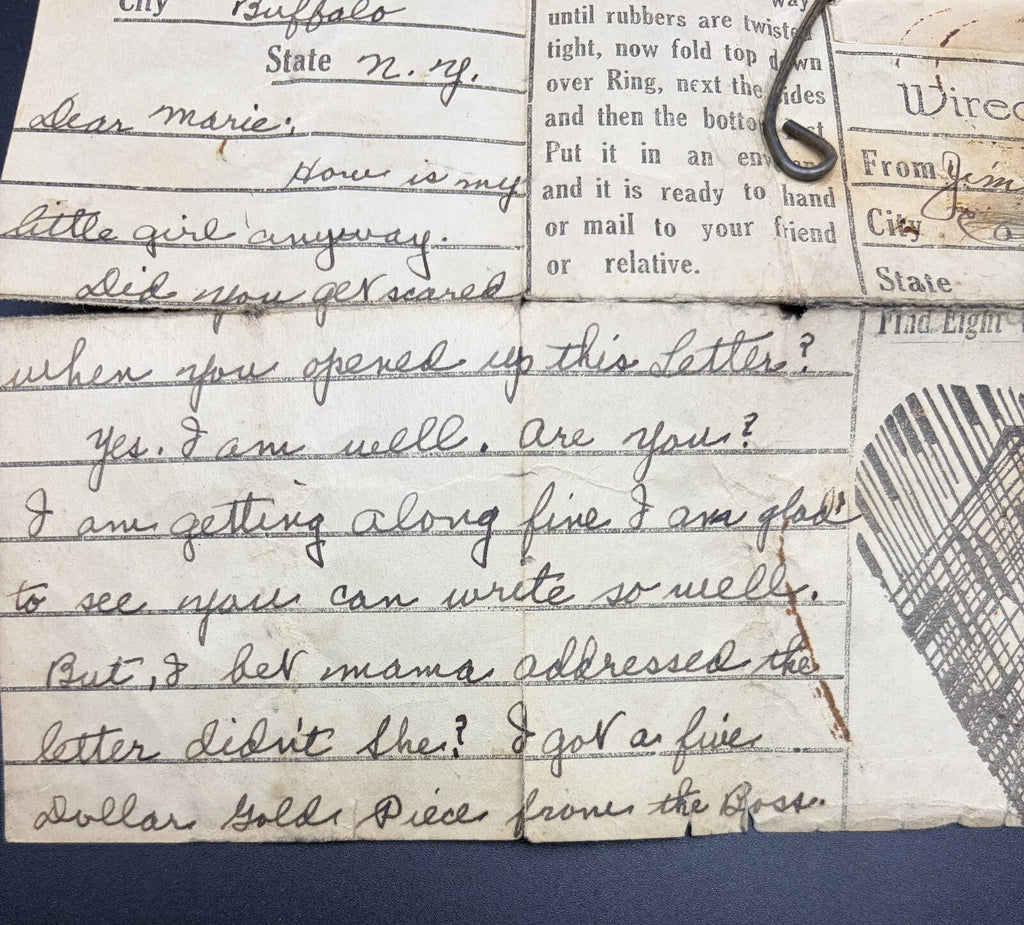 City Buffalo
State N. Y.
Dear Marie;
How is my
little girl anyway.
Did you get scared
when you opened up this Letter?
Yes. I am well. Are you?
I am getting along fine I am glad
to see you can write so well.
But, I bet mama addressed the
letter didn't She? I got a five
Dollar Gold Piece from the Boss.
way
until rubbers are twisted
tight, now fold top down
over Ring, next the sides
and then the bottom
Put it in an
and it is ready to hand
or mail to your friend
or relative.
Wired
From Jim
City
State
Find Eight